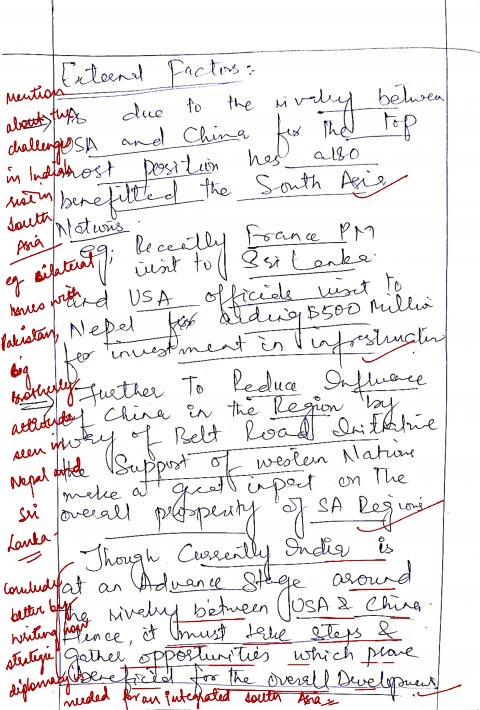 External Factors:-
mention
about the
challenges
in India's
rise in
South
Asia
eg Bilateral
issues with
Pakistan,
Big
Brotherly
attitude
seen in
Nepal and
Sri
Lanka.
due to the rivalry between
USA and China for the top
most position has also
benefitted the South Asia
Nations.
eg; Recently France PM
visit to Sri Lanka
and USA officials visit to
Nepal for aiding $500 Million
for investment in infrastructure
Further To Reduce Influence
of China in the Region by
way of Belt Road Initiative
the Support of western Nations
make a great impact on the
overall prosperity of SA Regions
Though Currently India is
at an Advance Stage around
the rivalry between USA & China.
Hence, it must take steps &
gather opportunities which prove
beneficial for the overall Development.
conclude
better by
writing how
strategic
diplomacy is
needed for an integrated South Asia.